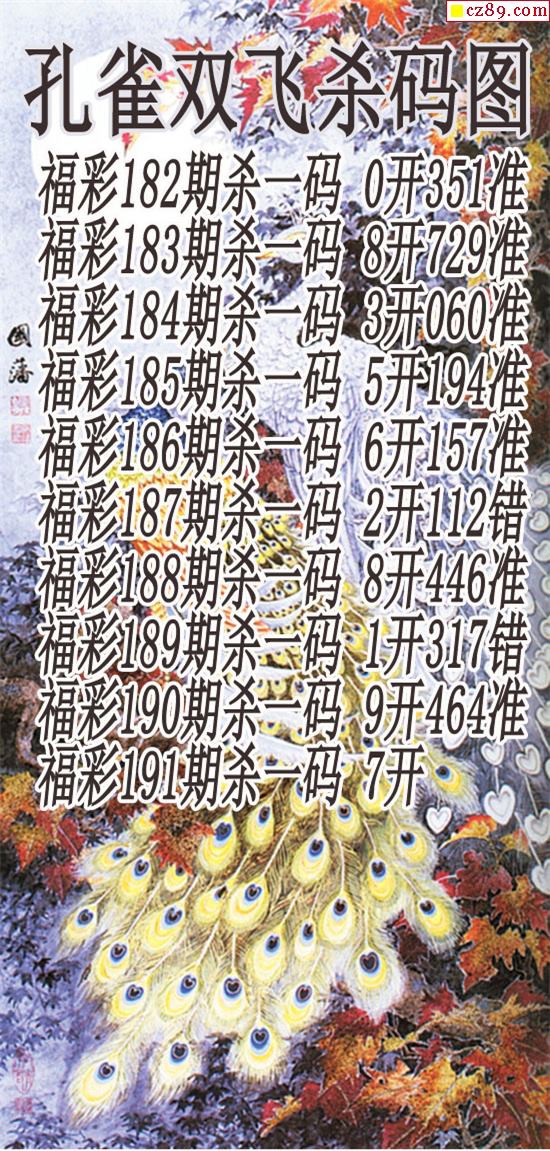 cz89.com
孔雀双飞杀码图
福彩182期杀一码 0开351准
福彩183期杀一码 8开729准
福彩184期杀一码 3开060准
福彩185期杀一码 5开194准
福彩186期杀一码 6开157准
福彩187期杀一码 2开112错
福彩188期杀一码 8开446准
福彩189期杀一码 1开317错
福彩190期杀一码 9开464准
福彩191期杀一码 7开
國藩